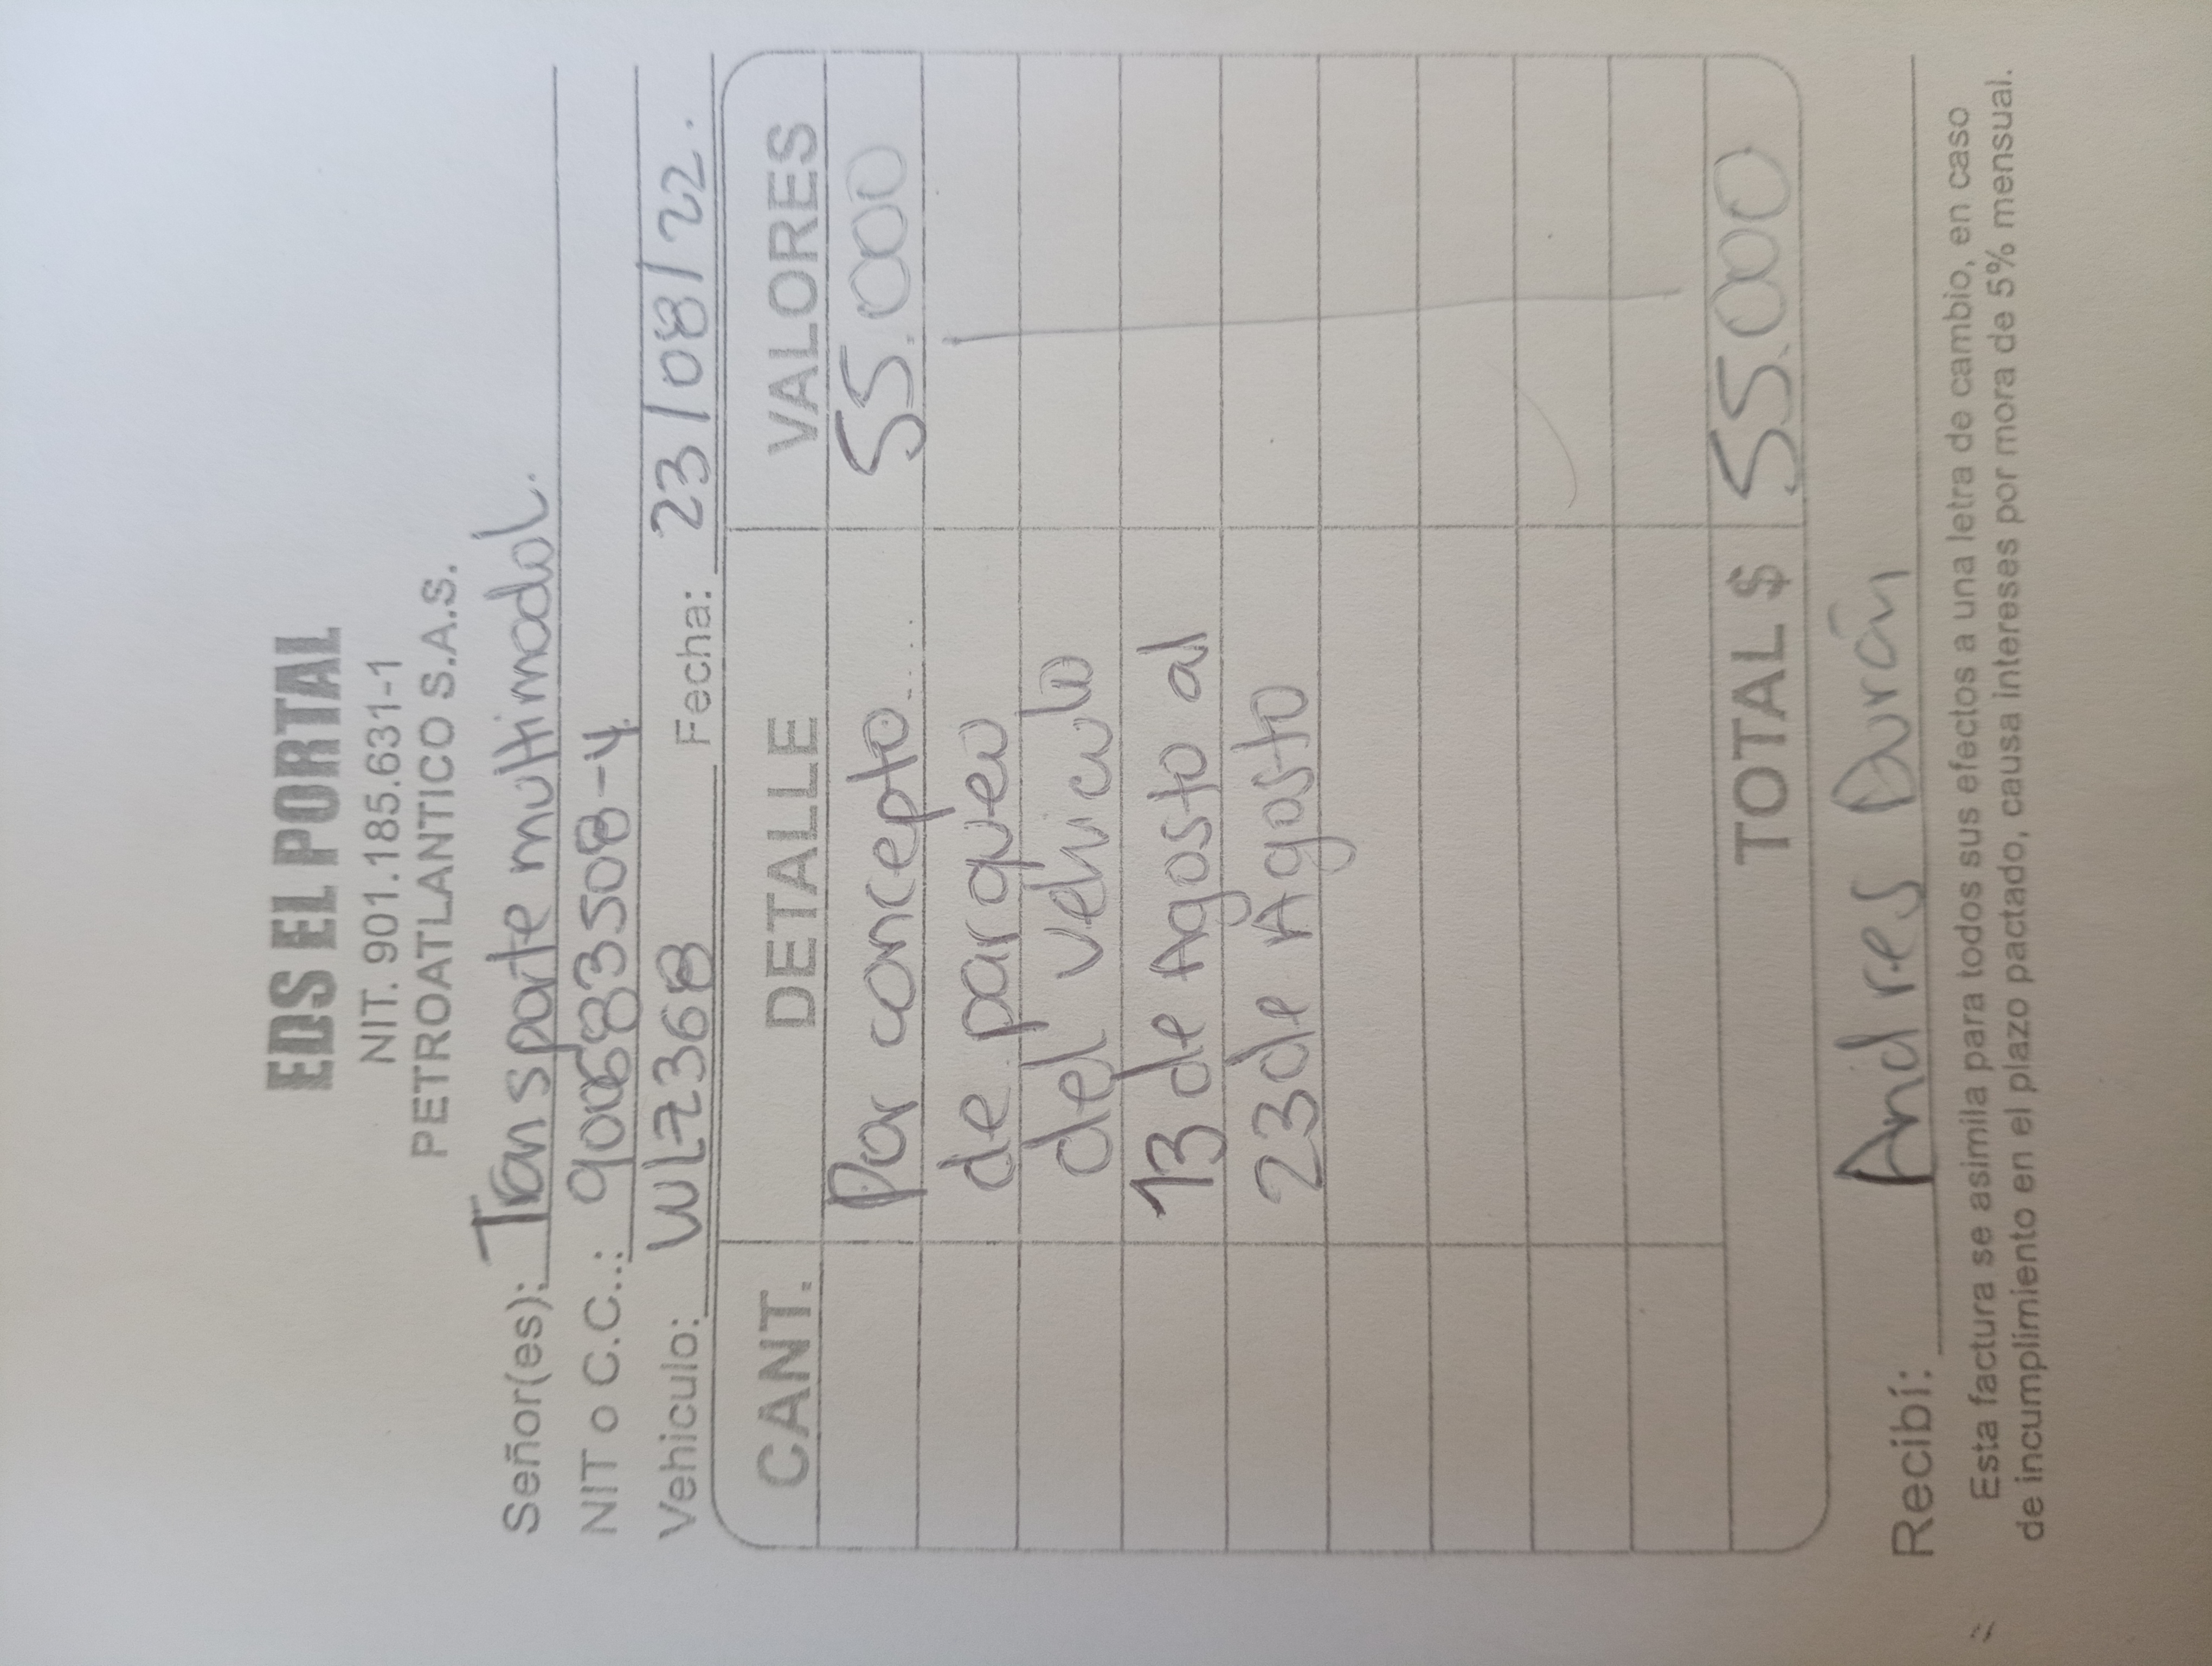 EDS EL PORTAL
NIT. 901.185.631-1
PETROATLANTICO S.A.S.
Señor(es): Transporte multimodal.
NIT o C.C.: 900683508-4
Vehiculo: WLZ368 Fecha: 23/08/22.
CANT. DETALLE VALORES
Por concepto..... 55.000
de parqueo
del vehiculo
13 de Agosto al
23 de Agosto
TOTAL $ 55.000
Recibí: Andres Durán
Esta factura se asimila para todos sus efectos a una letra de cambio, en caso
de incumplimiento en el plazo pactado, causa intereses por mora de 5% mensual.